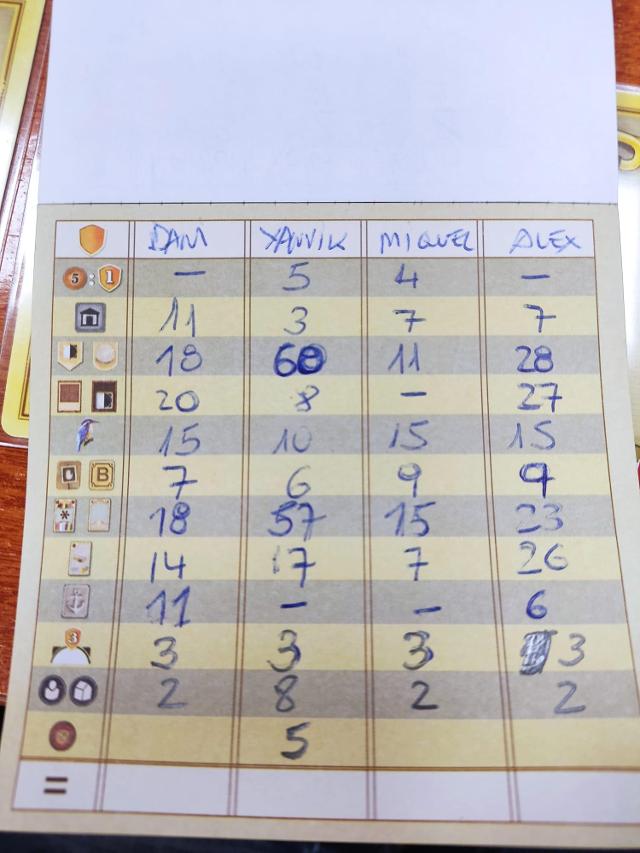 DAM YANNIK MIGUEL ALEX
5 : 1 — 5 4 —
11 3 7 7
18 60 11 28
20 8 — 27
15 10 15 15
B 7 6 9 9
* 18 57 15 23
14 17 7 26
11 — — 6
3 3 3 3 3
2 8 2 2
5
=